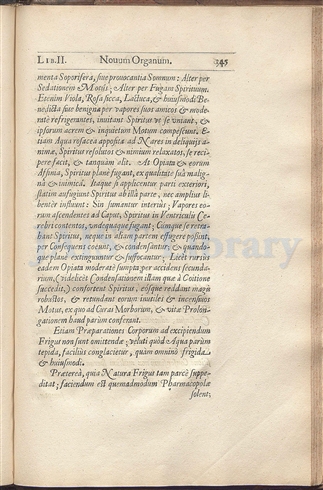 LIB.II. Nouum Organum. 345
menta Soporifera, siue prouocantia Somnum: Alter per
Sedationem Motûs: Alter per Fugam Spirituum.
Etenim Viola, Rosa sicca, Lactuca, & huiusmodi Be-
nedicta siue benigna, per vapores suos amicos & mode-
ratè refrigerantes, inuitant Spiritus vt se vniant, &
ipsorum acrem & inquietum Motum compescunt. E-
tiam Aqua rosacea apposita ad Nares in deliquijs a-
nimæ, Spiritus resolutos & nimium relaxatos, se reci-
pere facit, & tanquàm alit. At Opiata & eorum
Affinia, Spiritus planè fugant, ex qualitate suâ malig-
nâ & inimicâ. Itaque si applicentur parti exteriori,
statim aufugiunt Spiritus ab illâ parte, nec ampliùs li-
bentèr influunt: Sin sumantur interiùs; Vapores eo-
rum ascendentes ad Caput, Spiritus in Ventriculis Ce-
rebri contentos, vndequaque fugant; Cùmque se retra-
hant Spiritus, neque in aliam partem effugere possint,
per Consequens coeunt, & condensantur; & quando-
que planè extinguuntur & suffocantur; Licèt rursùs
eadem Opiata moderatè sumpta, per accidens secunda-
rium, (videlicèt Condensationem illam quæ à Coitione
succedit,) confortent Spiritus, eosque reddant magis
robustos, & retundant eorum inutiles & incensiuos
Motus, ex quo ad Curas Morborum, & vitæ Prolon-
gationem haud parùm conferant.
Etiam Præparationes Corporum ad excipiendum
Frigus non sunt omittendæ; veluti quòd Aqua parùm
tepida, faciliùs conglacietur, quàm omninò frigida,
& huiusmodi.
Prætereà, quia Natura Frigus tam parcè suppe-
ditat; faciendum est quemadmodum Pharmacopolæ
solent;
Library